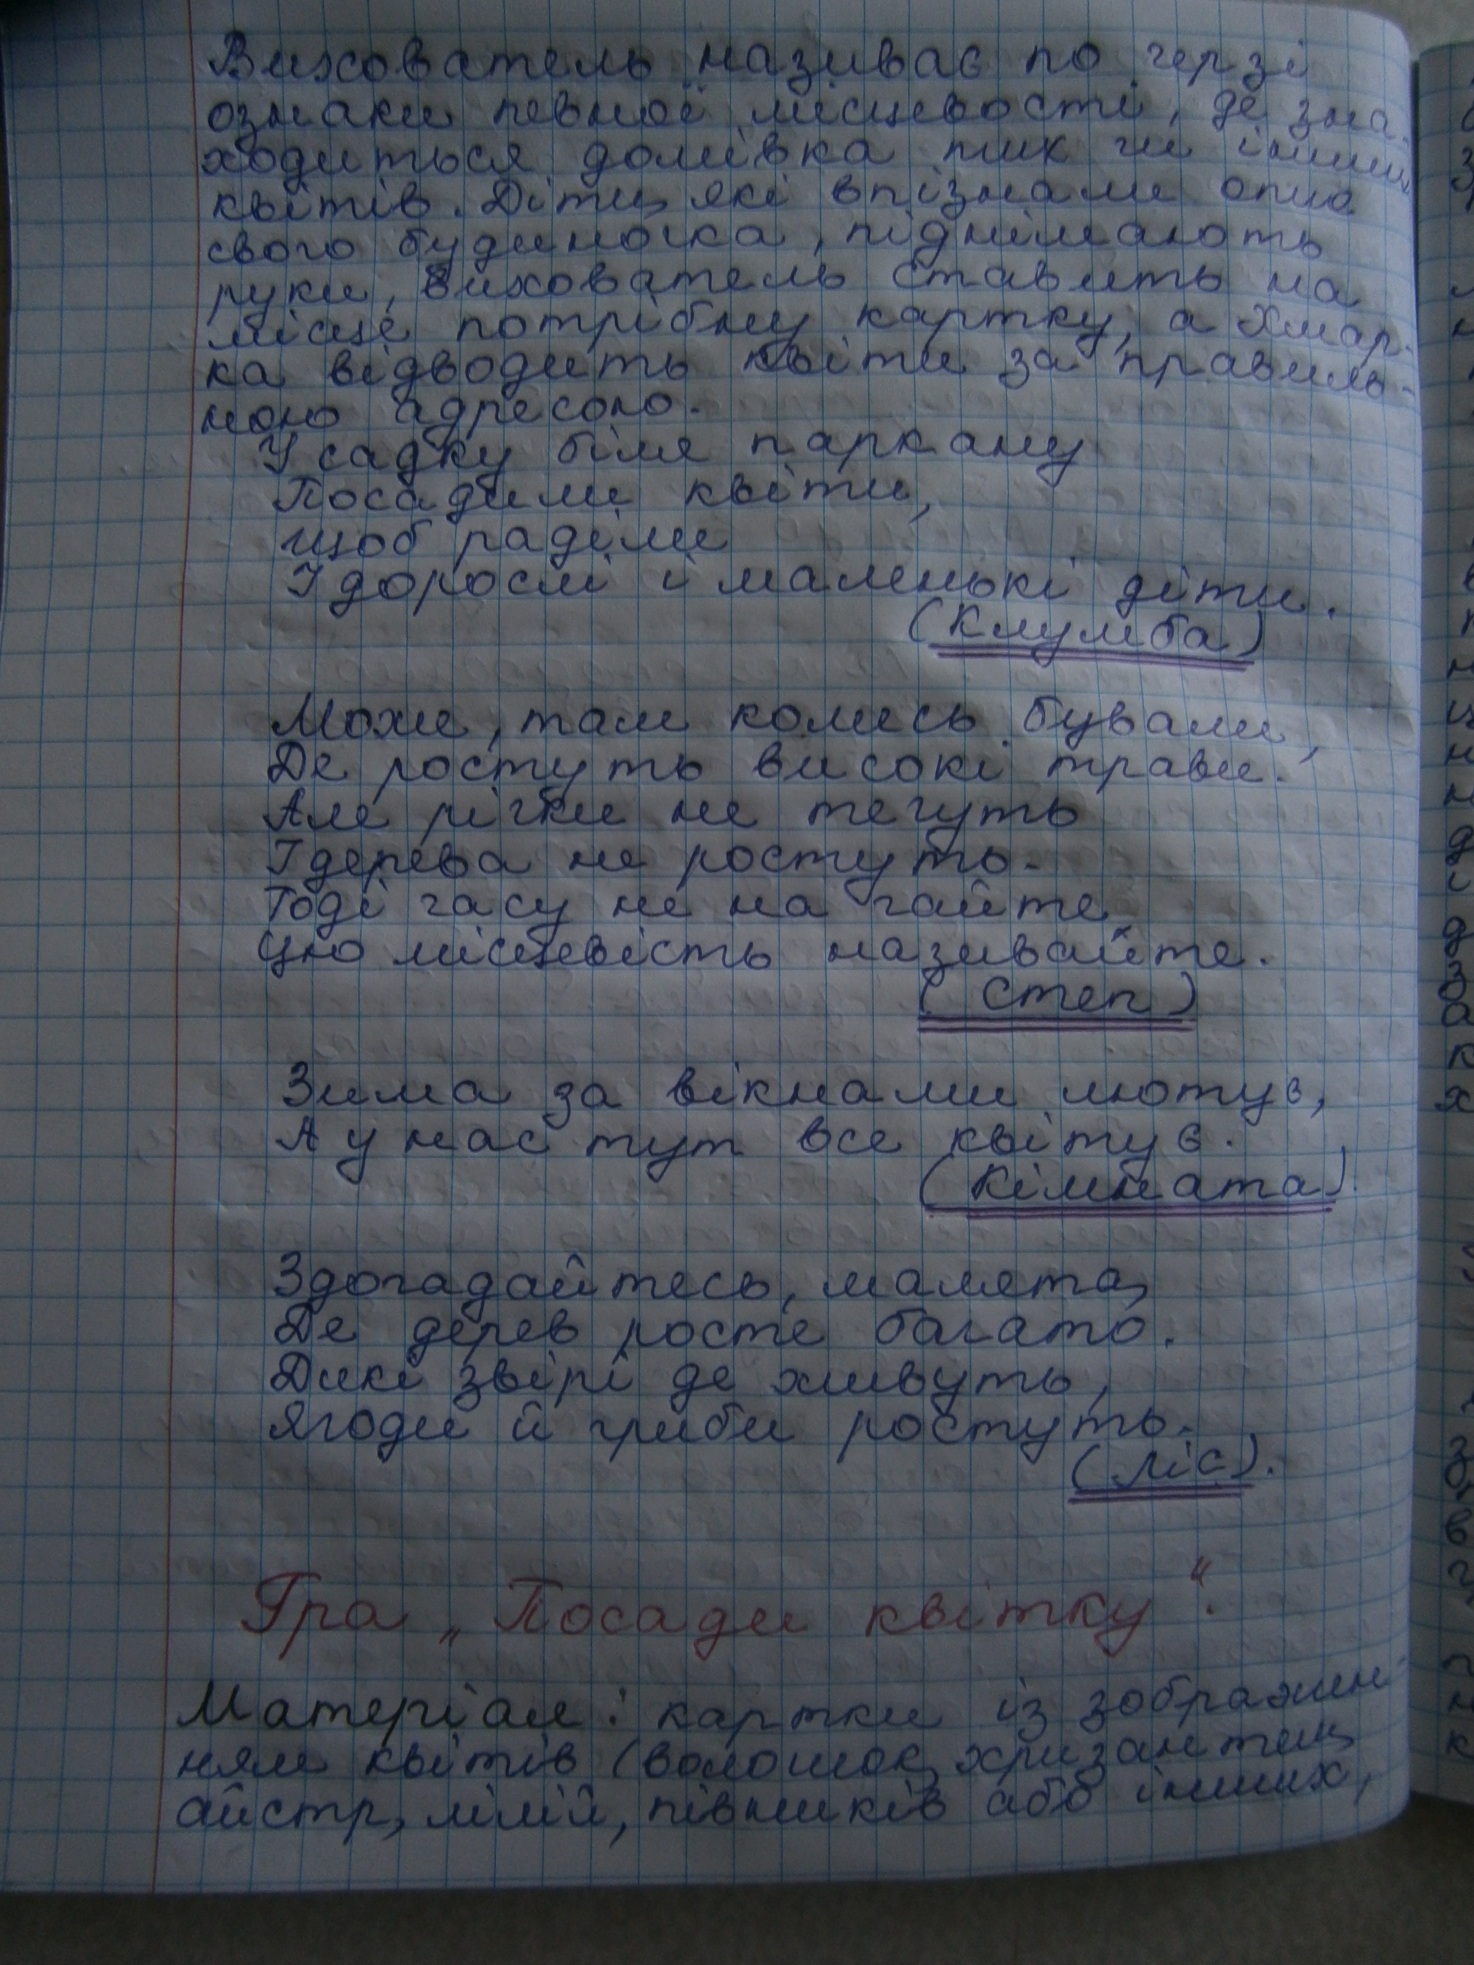 Вихователь називає по черзі
ознаки певної місцевості, де зна-
ходиться домівка тих чи інших
квітів. Діти, які впізнали опис
свого будиночка, піднімають
руки, вихователь ставить на
місце потрібну картку, а Хмар-
ка відводить квіти за правиль-
ною адресою.
У садку біля паркану
Посадили квіти,
Щоб раділи
І дорослі і маленькі діти.
(Клумба)
Може, там колись бували,
Де ростуть високі трави.
Але річки не течуть
І дерева не ростуть.
Тоді часу не гайте
Цю місцевість називайте.
(Степ)
Зима за вікнами лютує,
А у нас тут все квітує.
(Кімната)
Здогадайтесь, малята,
Де дерев росте багато.
Дикі звірі де живуть,
Ягоди й гриби ростуть.
(Ліс).
Гра „Посади квітку".
Матеріал: картки із зображен-
ням квітів (волошок, хризантем,
айстр, лілій, півників або інших,